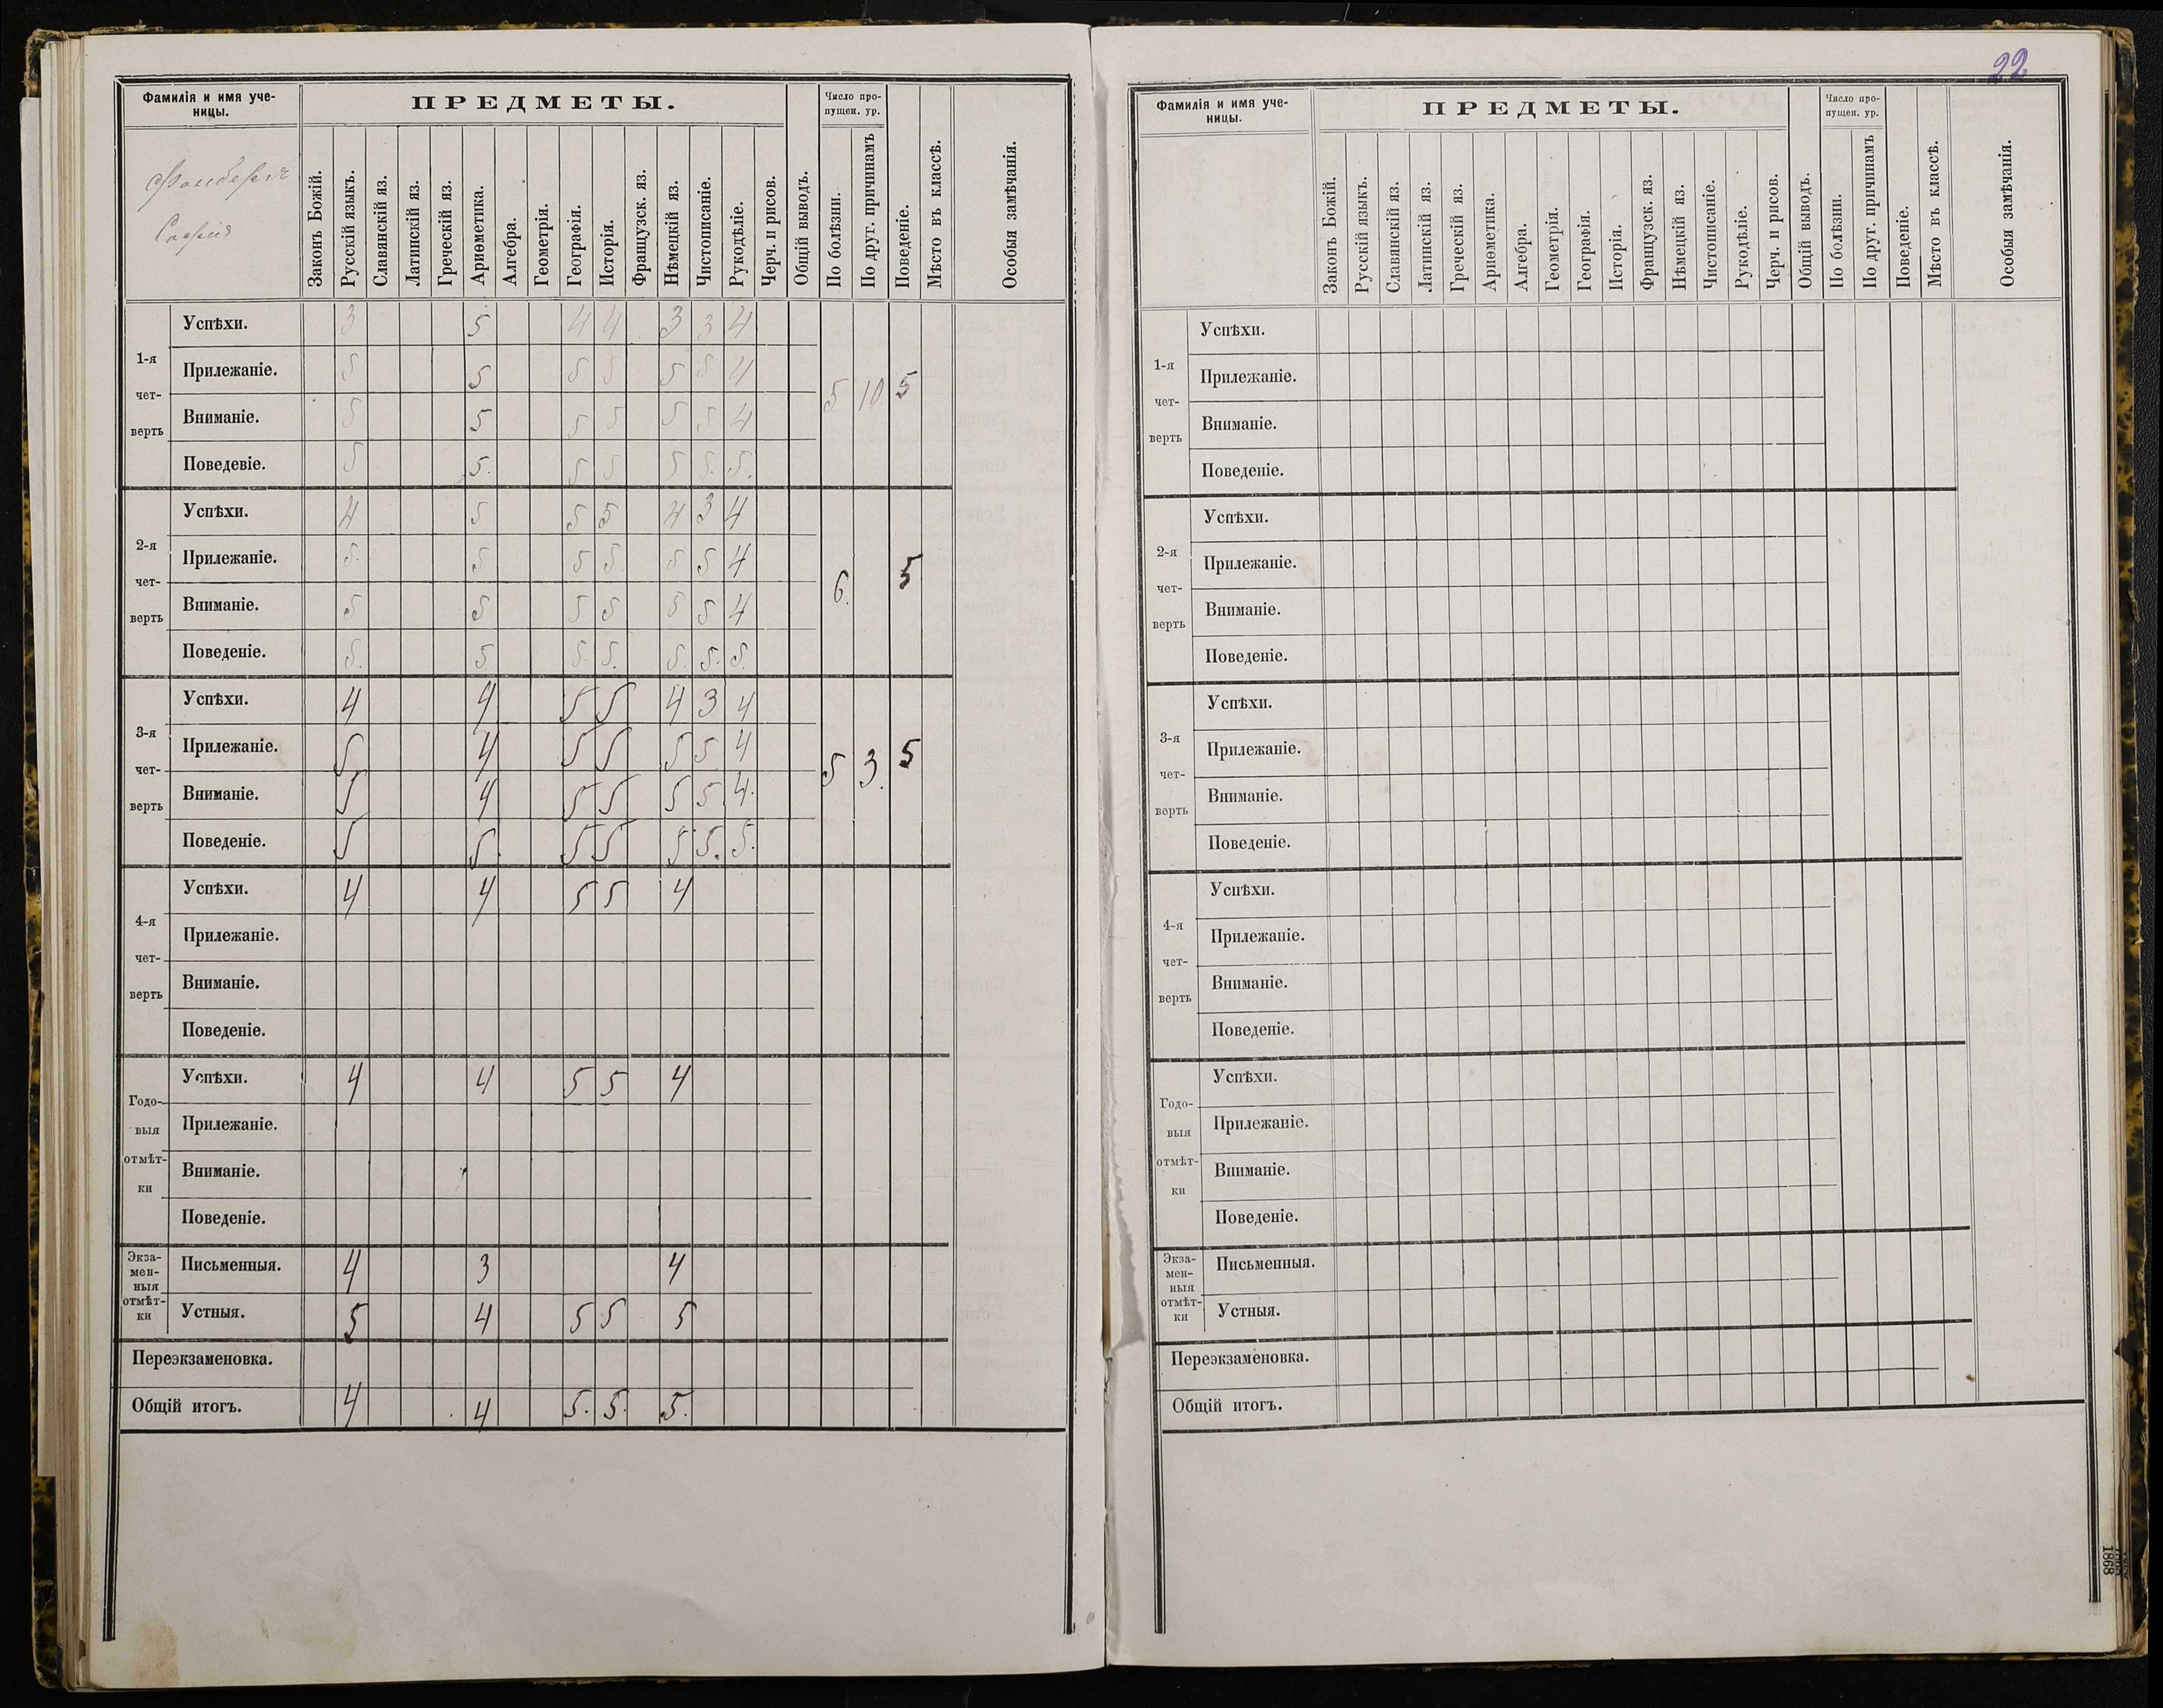 Фамилія и имя уче-
ницы.
ПРЕДМЕТЫ.
Число про-
пущен. ур.
София
Законъ Божій.
Русскій языкъ.
Славянскій яз.
Латинскій яз.
Греческій яз.
Ариѳметика.
Алгебра.
Геометрія.
Географія.
Исторія.
Французск. яз.
Нѣмецкій яз.
Чистописаніе.
Рукодѣліе.
Черч. и рисов.
Общій выводъ.
По болѣзни.
По друг. причинамъ
Поведеніе.
Мѣсто въ классѣ.
Особыя замѣчанія.
1-я
чет-
верть
Успѣхи. 3 5 4 4 3 3 4
Прилежаніе. 5 5 5 5 5 5 4
Вниманіе. 5 5 5 5 5 5 4
Поведевіе. 5 5. 5 5 5 5. 5.
5 10 5
2-я
чет-
верть
Успѣхи. 4 5 5 5 4 3 4
Прилежаніе. 5. 5 5 5 5 5 4
Вниманіе. 5 5 5 5 5 5 4
Поведеніе. 5. 5. 5. 5. 5. 5. 5.
6. 5
3-я
чет-
верть
Успѣхи. 4 4 5 5 4 3 4
Прилежаніе. 5 4 5 5 5 5 4
Вниманіе. 5 4 5 5 5 5 4.
Поведеніе. 5 5. 5 5 5 5. 5.
5 3. 5
4-я
чет-
верть
Успѣхи. 4 4 5 5 4
Прилежаніе.
Вниманіе.
Поведеніе.
Годо-
выя
отмѣт-
ки
Успѣхи. 4 4 5 5 4
Прилежаніе.
Вниманіе.
Поведеніе.
Экза-
мен-
ныя
отмѣт-
ки
Письменныя. 4 3 4
Устныя. 5 4 5 5 5
Переэкзаменовка.
Общій итогъ. 4 4 5. 5. 5.
22
Фамилія и имя уче-
ницы.
ПРЕДМЕТЫ.
Число про-
пущен. ур.
Законъ Божій.
Русскій языкъ.
Славянскій яз.
Латинскій яз.
Греческій яз.
Ариѳметика.
Алгебра.
Геометрія.
Географія.
Исторія.
Французск. яз.
Нѣмецкій яз.
Чистописаніе.
Рукодѣліе.
Черч. и рисов.
Общій выводъ.
По болѣзни.
По друг. причинамъ
Поведеніе.
Мѣсто въ классѣ.
Особыя замѣчанія.
1-я
чет-
верть
Успѣхи.
Прилежаніе.
Вниманіе.
Поведеніе.
2-я
чет-
верть
Успѣхи.
Прилежаніе.
Вниманіе.
Поведеніе.
3-я
чет-
верть
Успѣхи.
Прилежаніе.
Вниманіе.
Поведеніе.
4-я
чет-
верть
Успѣхи.
Прилежаніе.
Вниманіе.
Поведеніе.
Годо-
выя
отмѣт-
ки
Успѣхи.
Прилежаніе.
Вниманіе.
Поведеніе.
Экза-
мен-
ныя
отмѣт-
ки
Письменныя.
Устныя.
Переэкзаменовка.
Общій итогъ.
1868